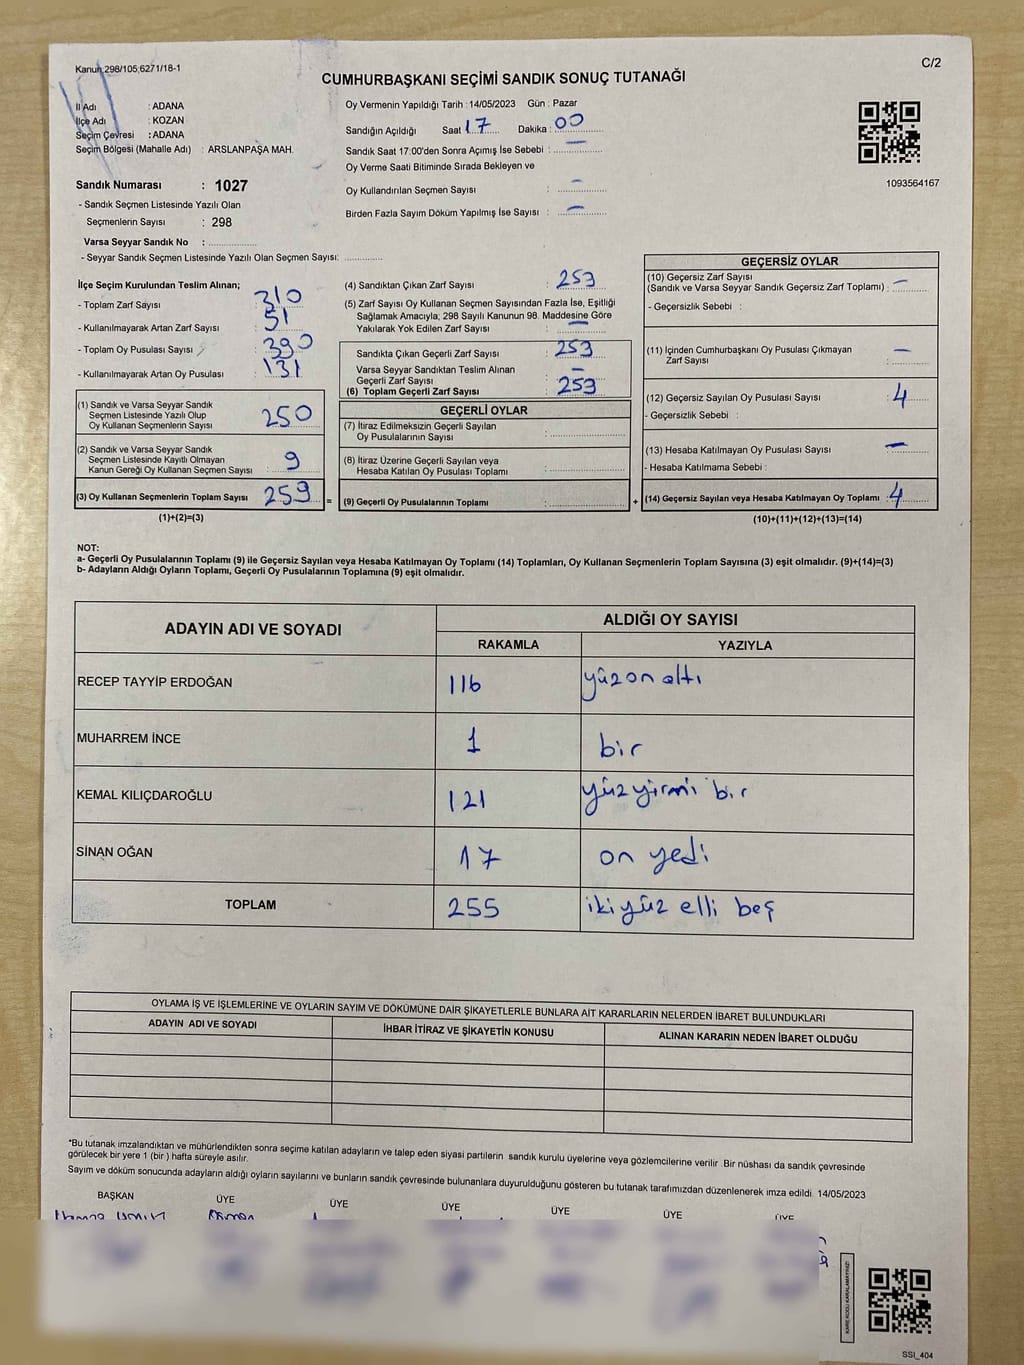 Kanun 298/105;6271/18-1
C/2
CUMHURBAŞKANI SEÇİMİ SANDIK SONUÇ TUTANAĞI
İl Adı : ADANA
İlçe Adı : KOZAN
Seçim Çevresi : ADANA
Seçim Bölgesi (Mahalle Adı) : ARSLANPAŞA MAH.
Sandık Numarası : 1027
- Sandık Seçmen Listesinde Yazılı Olan
Seçmenlerin Sayısı : 298
Varsa Seyyar Sandık No :
- Seyyar Sandık Seçmen Listesinde Yazılı Olan Seçmen Sayısı:
Oy Vermenin Yapıldığı Tarih : 14/05/2023 Gün : Pazar
Sandığın Açıldığı Saat 17 Dakika : 00
Sandık Saat 17:00'den Sonra Açımış İse Sebebi : —
Oy Verme Saati Bitiminde Sırada Bekleyen ve
Oy Kullandırılan Seçmen Sayısı : —
Birden Fazla Sayım Döküm Yapılmış İse Sayısı : —
1093564167
İlçe Seçim Kurulundan Teslim Alınan;
- Toplam Zarf Sayısı : 310
- Kullanılmayarak Artan Zarf Sayısı : 51
- Toplam Oy Pusulası Sayısı : 390
- Kullanılmayarak Artan Oy Pusulası : 131
(1) Sandık ve Varsa Seyyar Sandık
Seçmen Listesinde Yazılı Olup
Oy Kullanan Seçmenlerin Sayısı : 250
(2) Sandık ve Varsa Seyyar Sandık
Seçmen Listesinde Kayıtlı Olmayan
Kanun Gereği Oy Kullanan Seçmen Sayısı : 9
(3) Oy Kullanan Seçmenlerin Toplam Sayısı 259 =
(1)+(2)=(3)
(4) Sandıktan Çıkan Zarf Sayısı : 253
(5) Zarf Sayısı Oy Kullanan Seçmen Sayısından Fazla İse, Eşitliği
Sağlamak Amacıyla; 298 Sayılı Kanunun 98. Maddesine Göre
Yakılarak Yok Edilen Zarf Sayısı : —
Sandıkta Çıkan Geçerli Zarf Sayısı : 253
Varsa Seyyar Sandıktan Teslim Alınan
Geçerli Zarf Sayısı : —
(6) Toplam Geçerli Zarf Sayısı : 253
GEÇERLİ OYLAR
(7) İtiraz Edilmeksizin Geçerli Sayılan
Oy Pusulalarının Sayısı :
(8) İtiraz Üzerine Geçerli Sayılan veya
Hesaba Katılan Oy Pusulası Toplamı :
(9) Geçerli Oy Pusulalarının Toplamı : +
GEÇERSİZ OYLAR
(10) Geçersiz Zarf Sayısı
(Sandık ve Varsa Seyyar Sandık Geçersiz Zarf Toplamı) : —
- Geçersizlik Sebebi :
(11) İçinden Cumhurbaşkanı Oy Pusulası Çıkmayan
Zarf Sayısı : —
(12) Geçersiz Sayılan Oy Pusulası Sayısı : 4
- Geçersizlik Sebebi :
(13) Hesaba Katılmayan Oy Pusulası Sayısı : —
- Hesaba Katılmama Sebebi :
(14) Geçersiz Sayılan veya Hesaba Katılmayan Oy Toplamı : 4
(10)+(11)+(12)+(13)=(14)
NOT:
a- Geçerli Oy Pusulalarının Toplamı (9) ile Geçersiz Sayılan veya Hesaba Katılmayan Oy Toplamı (14) Toplamları, Oy Kullanan Seçmenlerin Toplam Sayısına (3) eşit olmalıdır. (9)+(14)=(3)
b- Adayların Aldığı Oyların Toplamı, Geçerli Oy Pusulalarının Toplamına (9) eşit olmalıdır.
ADAYIN ADI VE SOYADI
ALDIĞI OY SAYISI
RAKAMLA YAZIYLA
RECEP TAYYİP ERDOĞAN 116 yüzon altı
MUHARREM İNCE 1 bir
KEMAL KILIÇDAROĞLU 121 yüzyirmi bir
SİNAN OĞAN 17 on yedi
TOPLAM 255 ikiyüz elli beş
OYLAMA İŞ VE İŞLEMLERİNE VE OYLARIN SAYIM VE DÖKÜMÜNE DAİR ŞİKAYETLERLE BUNLARA AİT KARARLARIN NELERDEN İBARET BULUNDUKLARI
ADAYIN ADI VE SOYADI İHBAR İTİRAZ VE ŞİKAYETİN KONUSU ALINAN KARARIN NEDEN İBARET OLDUĞU
*Bu tutanak imzalandıktan ve mühürlendikten sonra seçime katılan adayların ve talep eden siyasi partilerin sandık kurulu üyelerine veya gözlemcilerine verilir. Bir nüshası da sandık çevresinde
görülecek bir yere 1 (bir ) hafta süreyle asılır.
Sayım ve döküm sonucunda adayların aldığı oyların sayılarını ve bunların sandık çevresinde bulunanlara duyurulduğunu gösteren bu tutanak tarafımızdan düzenlenerek imza edildi. 14/05/2023
BAŞKAN ÜYE ÜYE ÜYE ÜYE ÜYE ÜYE
KARE KODU KARALAMAYINIZ!
SSI_404